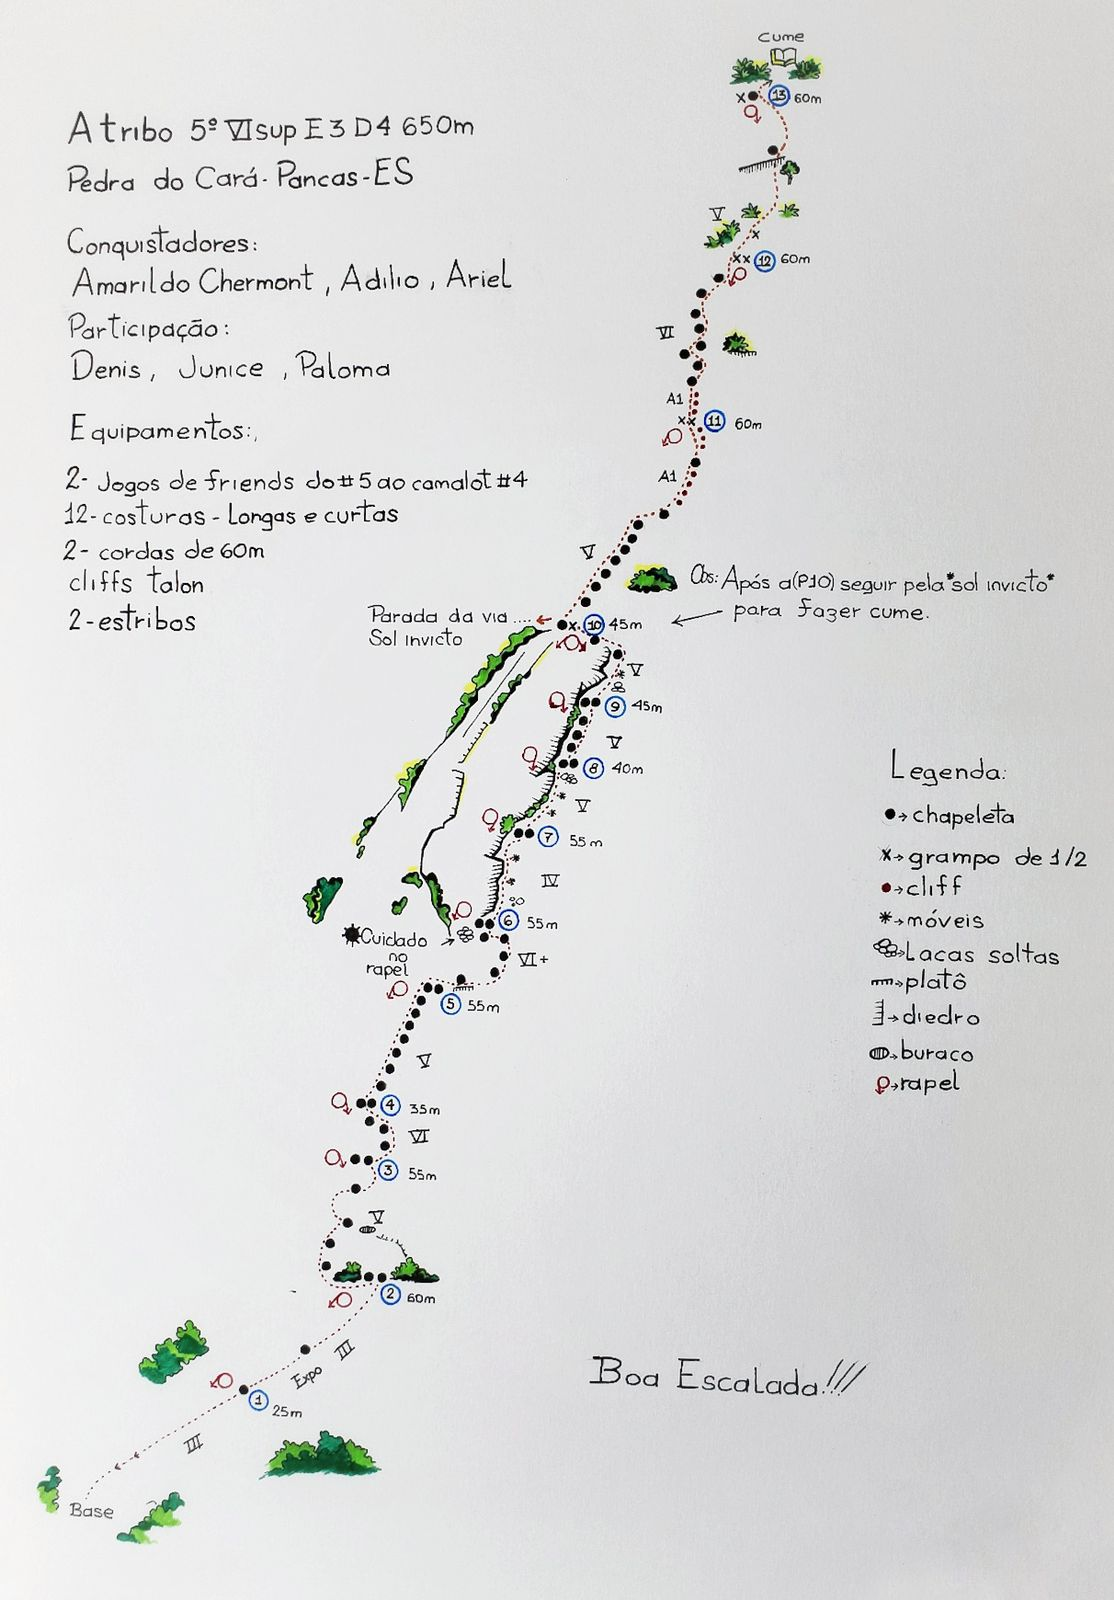 Cume
13 60m
Atribo 5º VIsup E3 D4 650m
Pedra do Cará-Pancas-ES
Conquistadores:
Amarildo Chermont, Adilio, Ariel
Participação:
Denis, Junice, Paloma
Equipamentos:,
2- Jogos de friends do #5 ao camalot #4
12- costuras - Longas e curtas
2- cordas de 60m
cliffs talon
2-estribos
V
12 60m
VI
A1
11 60m
A1
V
Obs: Após a (P10) seguir pela "sol invicto"
para fazer cume.
Parada da via ....
Sol invicto
10 45m
V
9 45m
V
8 40m
V
7 55m
IV
6 55m
Cuidado
no
rapel
VI+
5 55m
V
4 35m
VI
3 55m
V
2 60m
III
Expo
1 25m
III
Base
Legenda:
chapeleta
x→ grampo de 1/2
cliff
móveis
Lacas soltas
platô
diedro
buraco
rapel
Boa Escalada!!!